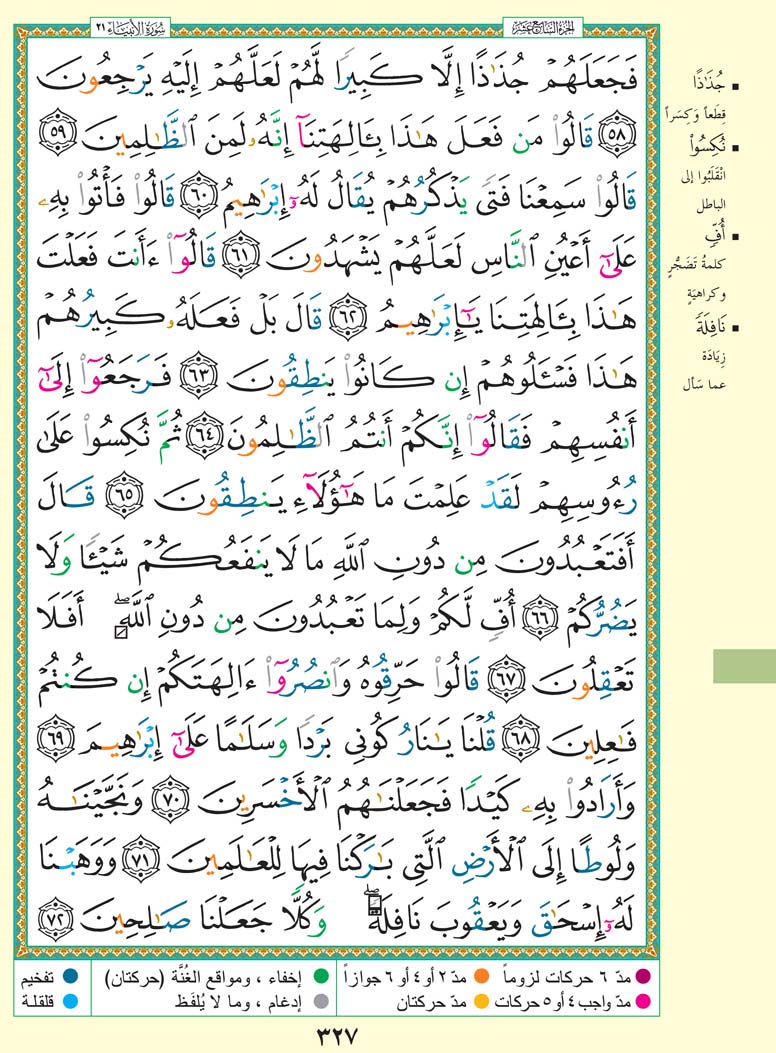 سُورَةُ الأَنْبِيَاءِ ٢١
الجُزْءُ السَّابِعَ عَشَرَ
فَجَعَلَهُمْ جُذَٰذًا إِلَّا كَبِيرًا لَّهُمْ لَعَلَّهُمْ إِلَيْهِ يَرْجِعُونَ
٥٨ قَالُوا۟ مَن فَعَلَ هَٰذَا بِـَٔالِهَتِنَآ إِنَّهُۥ لَمِنَ ٱلظَّٰلِمِينَ ٥٩
قَالُوا۟ سَمِعْنَا فَتًى يَذْكُرُهُمْ يُقَالُ لَهُۥٓ إِبْرَٰهِيمُ ٦٠ قَالُوا۟ فَأْتُوا۟ بِهِۦ
عَلَىٰٓ أَعْيُنِ ٱلنَّاسِ لَعَلَّهُمْ يَشْهَدُونَ ٦١ قَالُوٓا۟ ءَأَنتَ فَعَلْتَ
هَٰذَا بِـَٔالِهَتِنَا يَٰٓإِبْرَٰهِيمُ ٦٢ قَالَ بَلْ فَعَلَهُۥ كَبِيرُهُمْ
هَٰذَا فَسْـَٔلُوهُمْ إِن كَانُوا۟ يَنطِقُونَ ٦٣ فَرَجَعُوٓا۟ إِلَىٰٓ
أَنفُسِهِمْ فَقَالُوٓا۟ إِنَّكُمْ أَنتُمُ ٱلظَّٰلِمُونَ ٦٤ ثُمَّ نُكِسُوا۟ عَلَىٰ
رُءُوسِهِمْ لَقَدْ عَلِمْتَ مَا هَٰٓؤُلَآءِ يَنطِقُونَ ٦٥ قَالَ
أَفَتَعْبُدُونَ مِن دُونِ ٱللَّهِ مَا لَا يَنفَعُكُمْ شَيْـًٔا وَلَا
يَضُرُّكُمْ ٦٦ أُفٍّ لَّكُمْ وَلِمَا تَعْبُدُونَ مِن دُونِ ٱللَّهِۖ أَفَلَا
تَعْقِلُونَ ٦٧ قَالُوا۟ حَرِّقُوهُ وَٱنصُرُوٓا۟ ءَالِهَتَكُمْ إِن كُنتُمْ
فَٰعِلِينَ ٦٨ قُلْنَا يَٰنَارُ كُونِى بَرْدًا وَسَلَٰمًا عَلَىٰٓ إِبْرَٰهِيمَ ٦٩
وَأَرَادُوا۟ بِهِۦ كَيْدًا فَجَعَلْنَٰهُمُ ٱلْأَخْسَرِينَ ٧٠ وَنَجَّيْنَٰهُ
وَلُوطًا إِلَى ٱلْأَرْضِ ٱلَّتِى بَٰرَكْنَا فِيهَا لِلْعَٰلَمِينَ ٧١ وَوَهَبْنَا
لَهُۥٓ إِسْحَٰقَ وَيَعْقُوبَ نَافِلَةًۖ وَكُلًّا جَعَلْنَا صَٰلِحِينَ ٧٢
جُذَٰذًا
قِطَعاً وَكِسَراً
نُكِسُوا۟
انْقَلَبُوا إلى
الباطل
أُفٍّ
كلمةُ تَضَجُّرٍ
وكراهيَةٍ
نَافِلَةً
زِيَادَة
عما سَأل
مدّ ٦ حركات لزوماً مدّ ٢ أو ٤ أو ٦ جوازاً إخفاء ، ومواقع الغُنَّة (حركتان) تفخيم
مدّ واجب ٤ أو ٥ حركات مدّ حركتان إدغام ، وما لا يُلفَظ قلقلة
٣٢٧